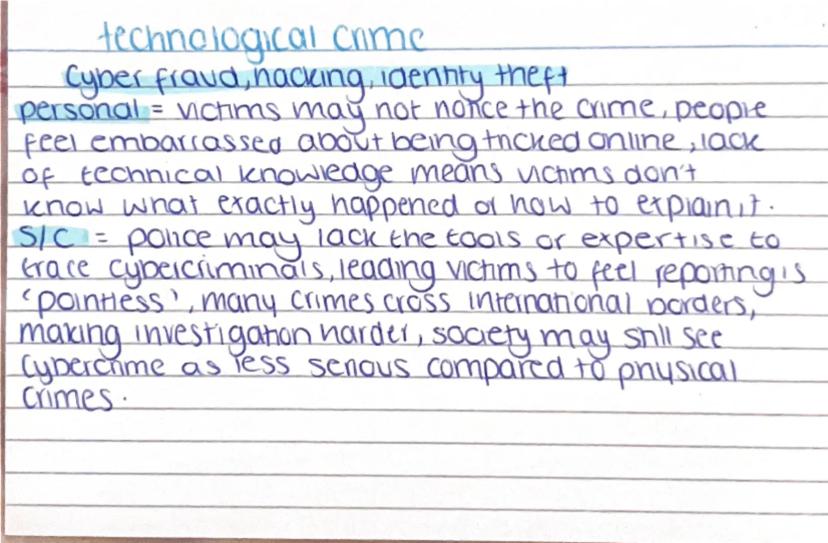 technological crime
Cyber fraud, hacking, identity theft
personal = victims may not notice the crime, people
feel embarrassed about being tricked online, lack
of technical knowledge means victims don't
know what exactly happened or how to explain it.
S/C = police may lack the tools or expertise to
trace cybercriminals, leading victims to feel reporting is
'pointless', many crimes cross international borders,
making investigation harder, society may still see
cybercrime as less serious compared to physical
crimes.